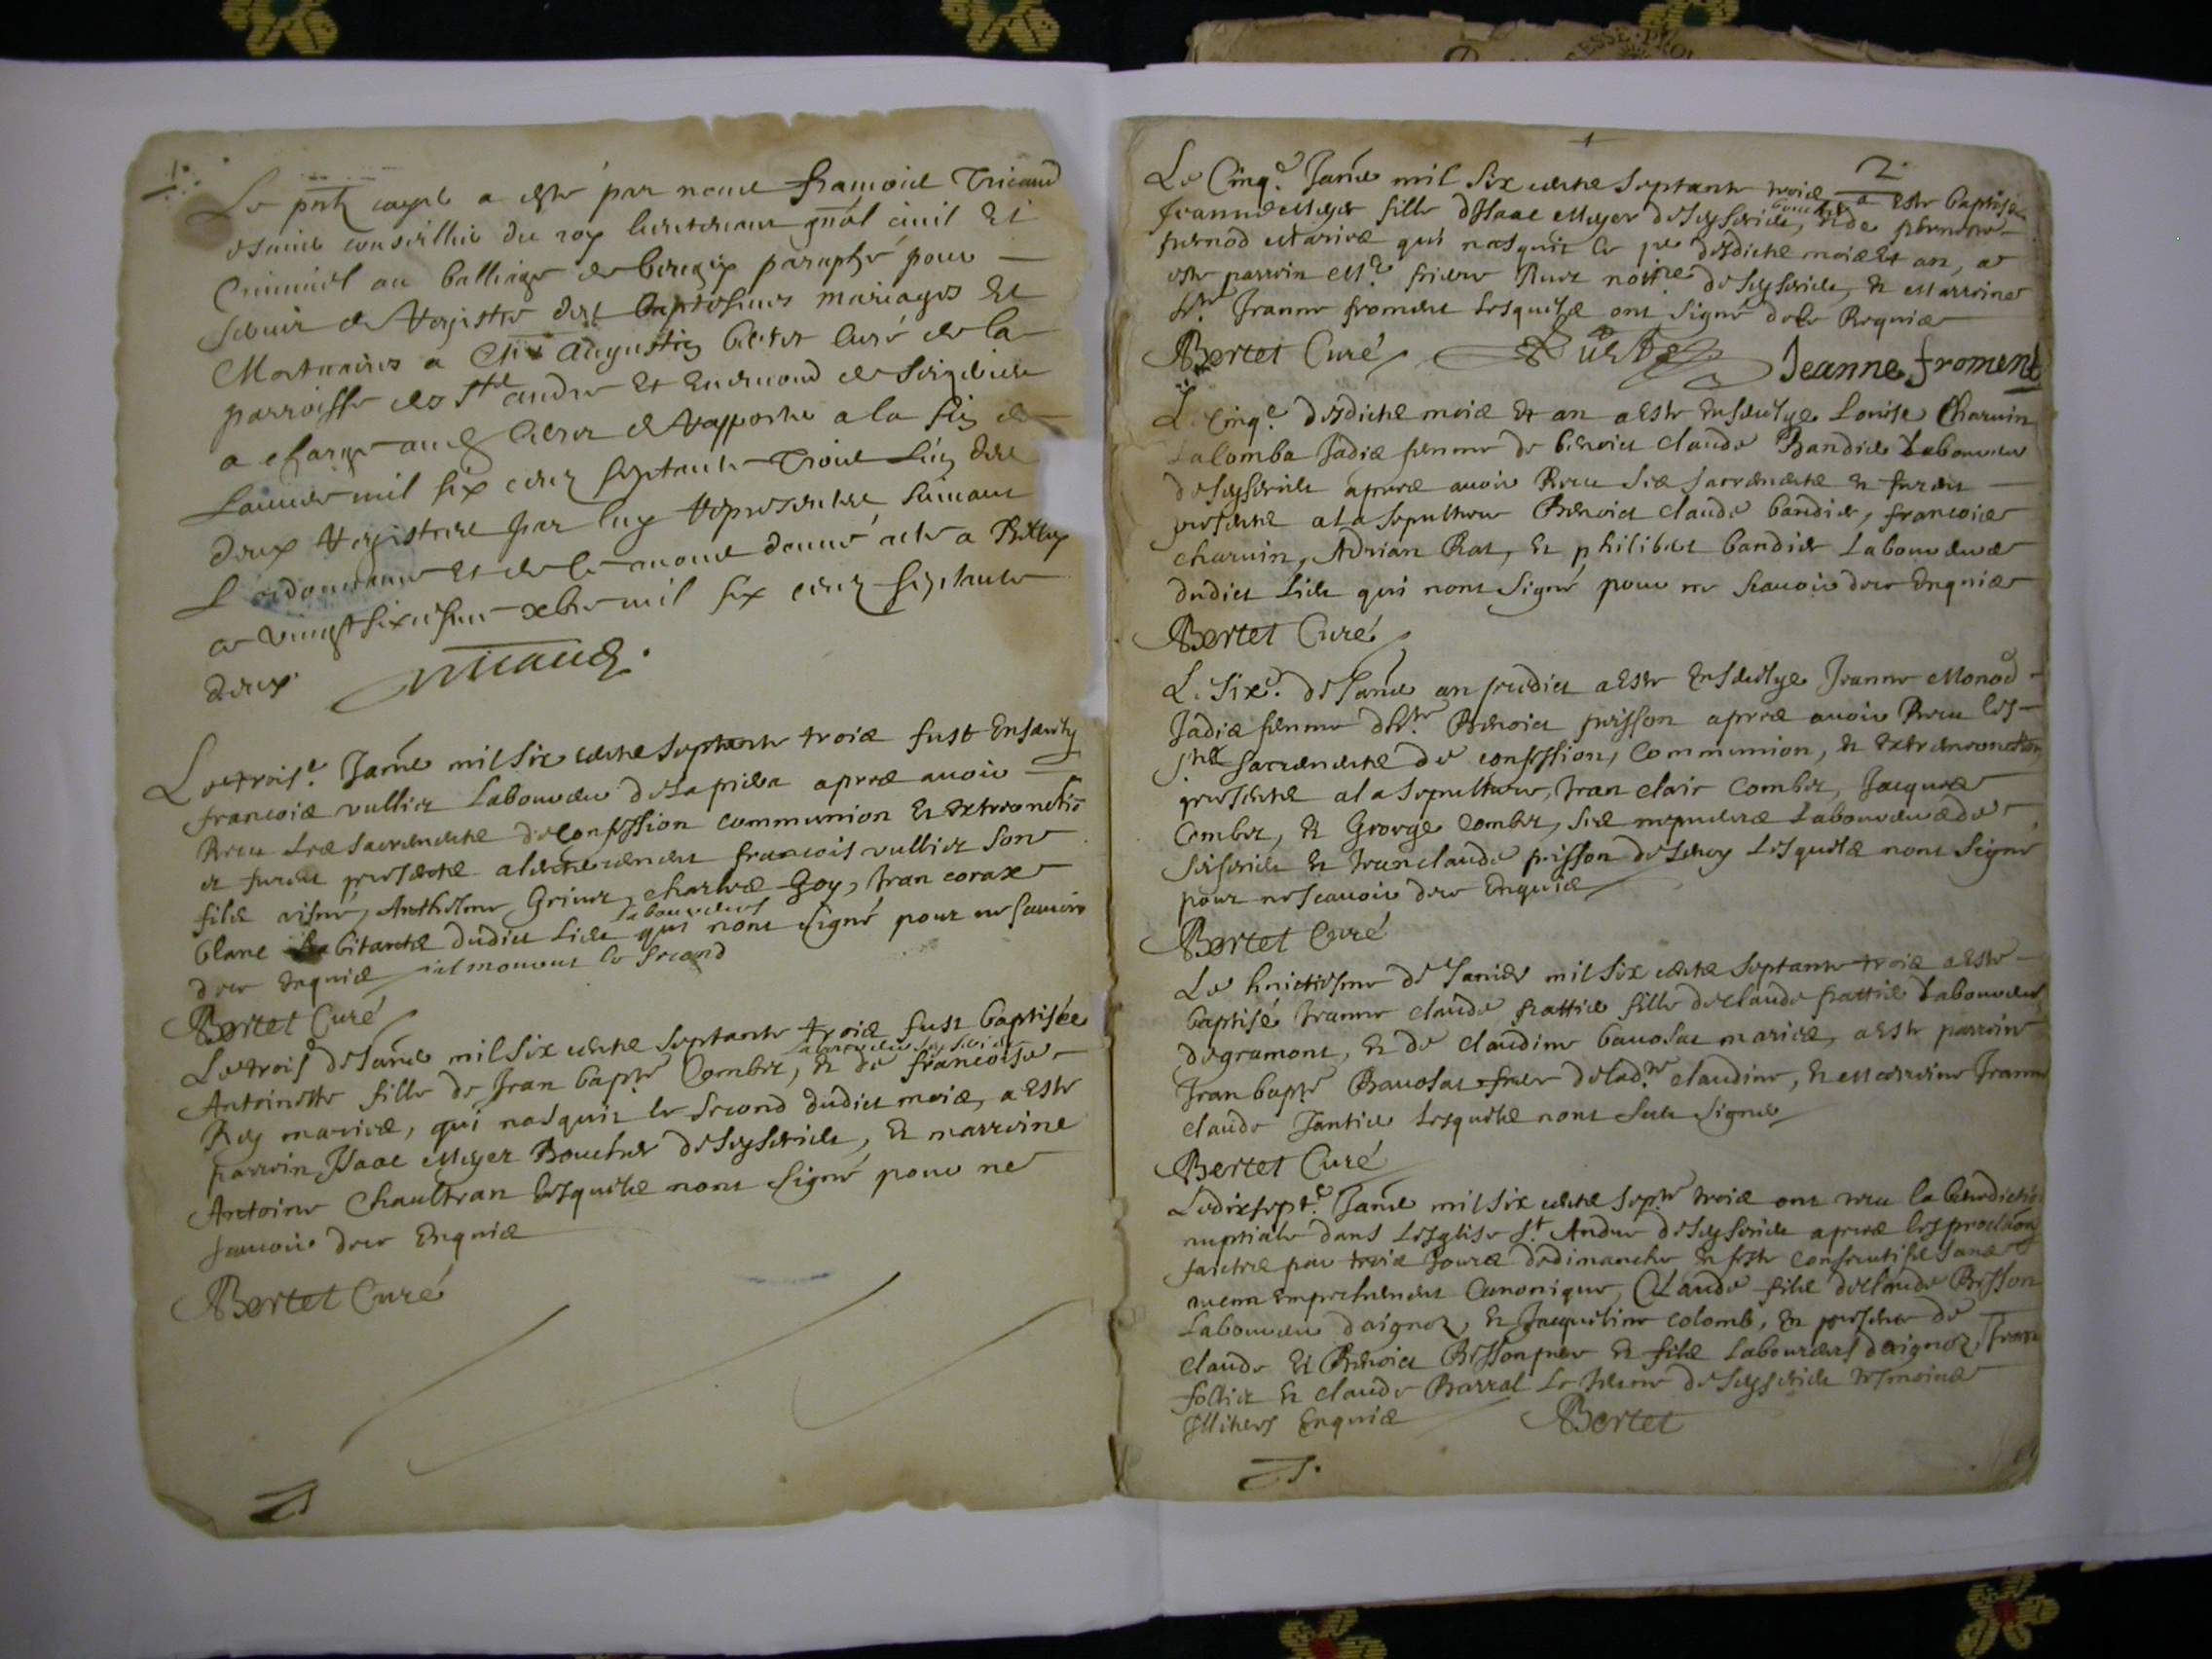 1
Le pnt cayer a esté par nous françois Tricaud
conseillier du roy lieutenant gnal civil Et
Criminel au balliage de beugey paraphé pour
servir de Registre des baptesmes mariages Et
Mortuaires a Augustin Bertet curé de la
parroisse de St andre Et de Seisserieu
a charge aud Bertet de Rapporter a la fin de
Lannee mil six centz septante Trois Lung des
deux Registres par luy Representés suivant
L ordonnance et de le nous donné acte a Belley
ce vingt sixiesme xbre mil six centz septante
deux
Tricaud
Le troise Janve mil six cents septante trois fust Ensevely
francois vullier Laboureur de apres avoir
Receu Les sacrements de Confession communion Et Extreonctio
et furent presents a lenterrement francois vullier son
fils aisné, Anthelme Grinet, charles Goy, Jean corax
blanc habitants dudict Lieu laboureurs qui nont signé pour ne scavoir
de ce Enquis il mourut le second
Bertet Curé
Le trois de Janve mil six cents septante trois fust baptisée
Antoinette fille de Jean bapte Combet, laboureur de Seyserieu Et de francoise
Rey mariés, qui nasquit le second dudict mois, a Esté
parrein Isaac Meyer Boucher de Seyserieu, Et marreine
Antoine Chaultran Lesquels nont signé pour ne
scavoir de ce Enquis
Bertet Curé
2
Le Cinqe Janve mil six cents septante trois a Esté baptisée
Jeanne Meyer fille d Isaac Meyer de Seyserieu, boucher et de
pernod Mariés qui nasquit le pr desdicts mois Et an, a
esté parrein Mre notre de Seyserieu, Et Marreine
Jeanne froment Lesquels ont signé de ce Requis
Bertet Curé
Jeanne froment
Le Cinqe desdicts mois Et an a Esté Ensevelye Louise Charvin
Lalomba Jadis femme de benoict claude Bandier Laboureur
de Seyserieu apres avoir Receu Les sacrements Et furent
presents a la sepulture Benoict claude bandier, francois
charvin, Adrian Rat, Et philibert bandier Laboureurs
dudict Lieu qui nont signé pour ne scavoir de ce Enquis
Bertet Curé
Le sixe de Janve an susdict a Esté Ensevelye Jeanne Monod
Jadis femme Benoict prisson apres avoir Receu les
sts sacrements de confession, Communion, Et Extremeonction
presents a la sepulture, Jean clair Combet, Jacques
Combet, Et George Combet, ses nepveux Laboureurs de
Seiserieu Et Jean claude prisson Lesquels nont signé
pour ne scavoir de ce Enquis
Bertet Curé
Le huictiesme de Janier mil six cents septante trois a Esté
baptisé Jeanne claude frattier fille de claude frattier Laboureur
de gramont, Et de claudine bavosat mariés, a Esté parrein
Jean bapte Bavosat frere de lade claudine, Et Marreine Jeanne
claude Lesquels nont sceu signer
Bertet Curé
Le dixsepte Janve mil six cents septe trois ont receu la benedictio
nuptiale dans Lesglise St Andre de Seyserieu apres les proclaons
faictes par trois Jours de dimanche Et feste consecutifs sans
aucun Empechement Canonique, Claude fils de claude Brisson
Laboureur daignoz, Et Jacqueline colomb, En presence de
claude Et Benoict Brisson pere Et fils Laboureurs daignoz, Jean
follier Et claude Barral Le Jeune de Seyserieu tesmoins
Illiters Enquis
Bertet